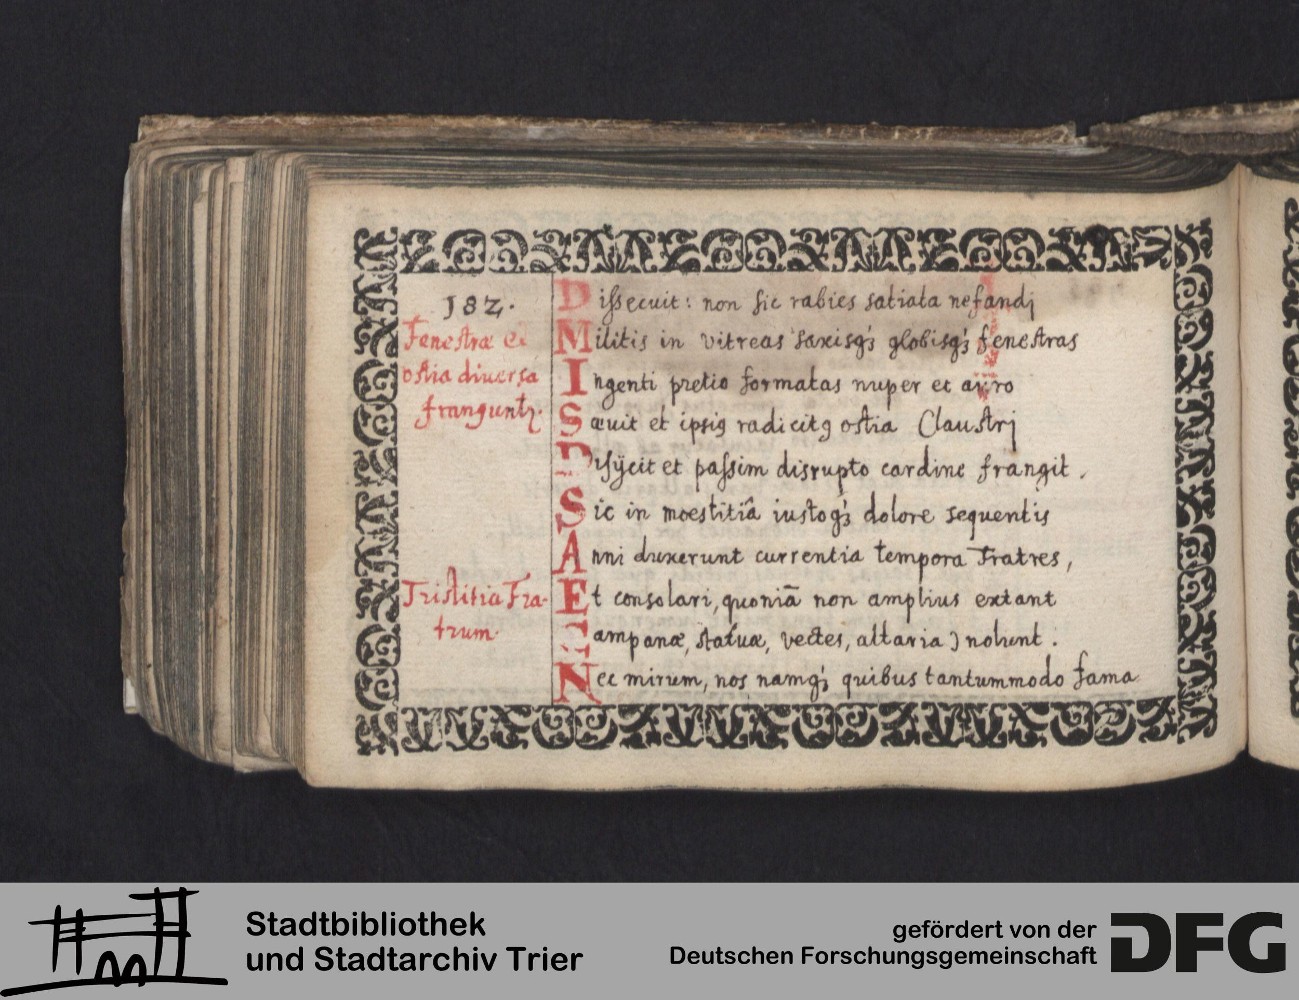 182.
Fenestræ et
ostia diuersa
frangunt᷑.
Dissecuit: non sic rabies satiata nefandj
Militis in vitreas saxisq́ꝫ globisq́ꝫ fenestras
Ingenti pretio formatas nuper et auro
Sæuit et ipsis radicitꝰ ostia Claustrj
Disÿcit et passim disrupto cardine frangit.
Sic in moestitiâ iustoq́ꝫ dolore sequentis
Anni duxerunt currentia tempora Fratres,
Tristitia Fra-
trum.
Et consolari, quoniã non amplius extant
Campanæ, statuæ, vectes, altaria) nolunt.
Nec mirum, nos namq́ꝫ quibus tantummodo fama
Stadtbibliothek
und Stadtarchiv Trier
gefördert von der
Deutschen Forschungsgemeinschaft
DFG